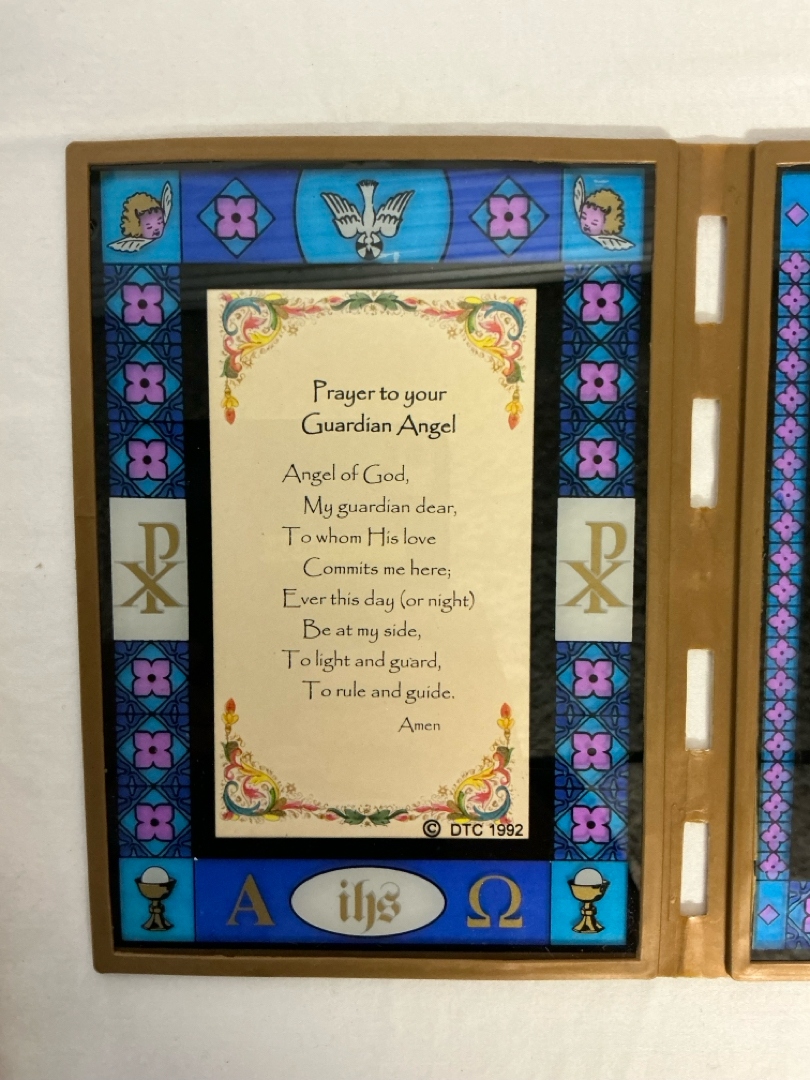 Prayer to your
Guardian Angel
Angel of God,
My guardian dear,
To whom His love
Commits me here;
Ever this day (or night)
Be at my side,
To light and guard,
To rule and guide.
Amen
© DTC 1992
Α ihs Ω